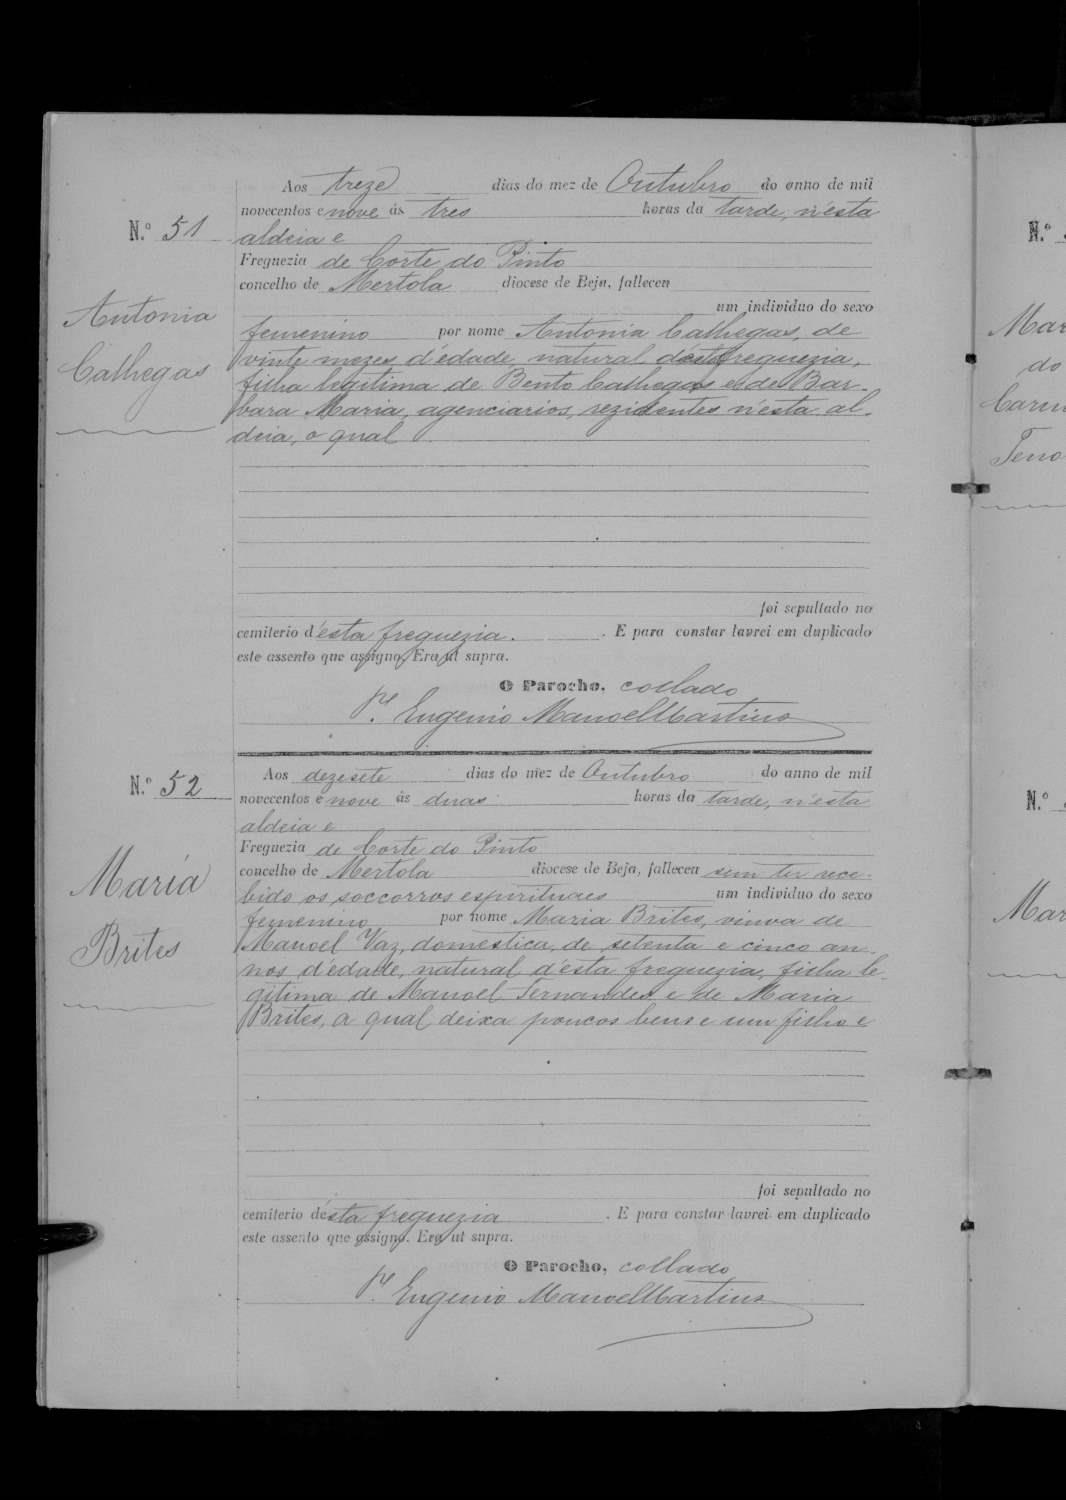 Aos treze dias do mez de Outubro do anno de mil
novecentos e nove ás tres horas da tarde, n'esta
N.º 51
aldeia e
Freguezia de Corte do Pinto
concelho de Mertola diocese de Beja, falleceu
um individuo do sexo
Antonia
Calhegas
femenino por nome Antonia Calhegas, de
vinte mezes d'edade, natural d'esta freguezia,
filha legitima de Bento Calhegas e de Bar-
bara Maria, agenciarios, rezidentes n'esta al-
deia, o qual
foi sepultado no
cemiterio d'esta freguezia. E para constar lavrei em duplicado
este assento que assigno. Era ut supra.
O Parocho, collado
P.e Eugenio Manoel Martins
N.º 52
Aos dezesete dias do mez de Outubro do anno de mil
novecentos e nove ás duas horas da tarde, n'esta
aldeia e
Freguezia de Corte do Pinto
concelho de Mertola diocese de Beja, falleceu sem ter rece-
bido os soccorros espirituaes um individuo do sexo
Maria
Brites
femenino por nome Maria Brites, viuva de
Manoel Vaz, domestica, de setenta e cinco an-
nos d'edade, natural d'esta freguezia, filha le-
gitima de Manoel Fernandes e de Maria
Brites, a qual deixa poucos bens e um filho e
foi sepultado no
cemiterio d'esta freguezia. E para constar lavrei em duplicado
este assento que assigno. Era ut supra.
O Parocho, collado
P.e Eugenio Manoel Martins
N.º
Mar
do
Carm
N.º
Mar